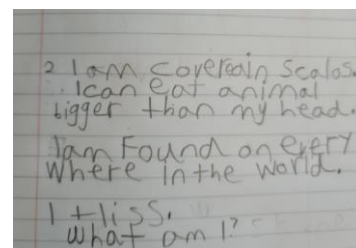 2 I am covereain scalos.
I can eat animal
bigger than my head.
Iam Found on every
where in the world.
I t liss.
what am I?